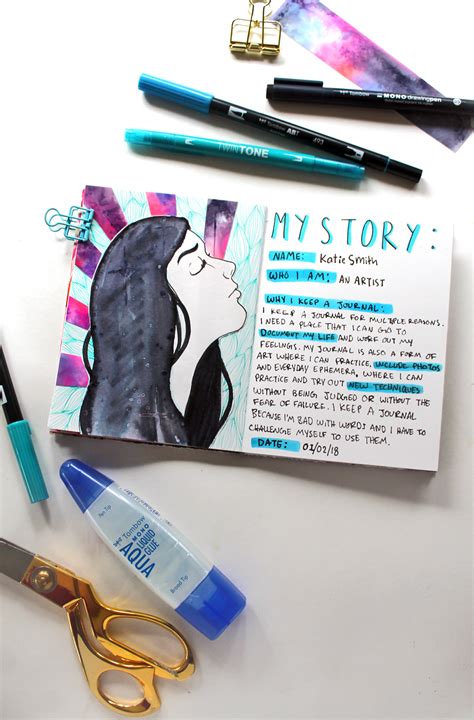 Tombow MONO drawing pen
Tombow ABT 493
TWINTONE
MY STORY:
NAME: Katie Smith
WHO I AM: AN ARTIST
WHY I KEEP A JOURNAL:
I KEEP A JOURNAL FOR MULTIPLE REASONS.
I NEED A PLACE THAT I CAN GO TO
DOCUMENT MY LIFE AND WORK OUT MY
FEELINGS. MY JOURNAL IS ALSO A FORM OF
ART WHERE I CAN PRACTICE, INCLUDE PHOTOS
AND EVERYDAY EPHEMERA, WHERE I CAN
PRACTICE AND TRY OUT NEW TECHNIQUES
WITHOUT BEING JUDGED OR WITHOUT THE
FEAR OF FAILURE. I KEEP A JOURNAL
BECAUSE I'M BAD WITH WORDS AND I HAVE TO
CHALLENGE MYSELF TO USE THEM.
DATE: 02/02/18
Pen Tip
Tombow
MONO
LIQUID GLUE
AQUA
Broad Tip